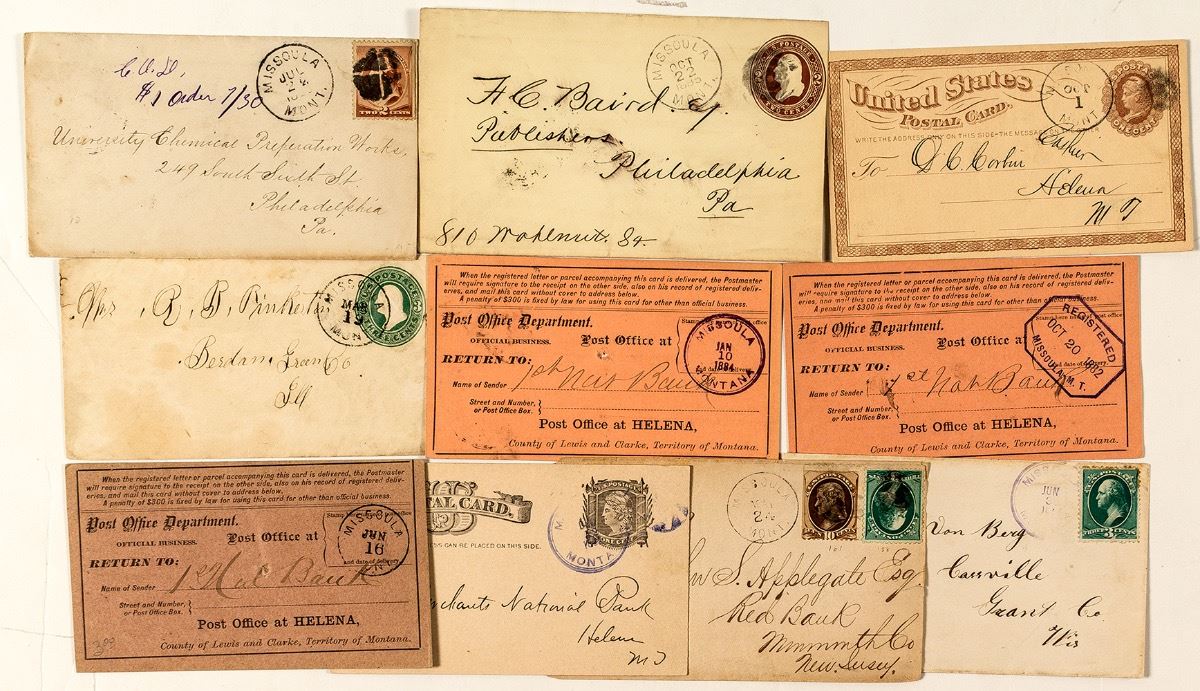 C.O.D.
$1 Order 7/30
MISSOULA
JUL
24
MONT.
TWO 2 CENTS
University Chemical Preperation Works,
249 South Sixth St.
Philadelphia
Pa.
MISSOULA
OCT
MONT.
U.S. POSTAGE
TWO CENTS
H.C. Baird
Publishers
Philadelphia
Pa
810 Wahlnut. St.
United States
POSTAL CARD.
WRITE THE ADDRESS ONLY ON THIS SIDE-THE MESSAGE
OCT
1
MONT
ONE CENT
To D.C. Corbin Cashier
Helena
M T
MISSOULA
MAR
19
MONT
POSTAGE
R. B. Pinkerton
Berdan, Green Co
Ill
When the registered letter or parcel accompanying this card is delivered, the Postmaster
will require signature to the receipt on the other side, also on his record of registered deliv-
eries, and mail this card without cover to address below.
A penalty of $300 is fixed by law for using this card for other than official business.
Post Office Department.
OFFICIAL BUSINESS.
Post Office at
RETURN TO:
and date of delivery.
MISSOULA
JAN
10
1884
MONTANA
Name of Sender 1st Nat Bank
Street and Number,
or Post Office Box.
Post Office at HELENA,
County of Lewis and Clarke, Territory of Montana.
When the registered letter or parcel accompanying this card is delivered, the Postmaster
will require signature to the receipt on the other side, also on his record of registered deliv-
eries, and mail this card without cover to address below.
A penalty of $300 is fixed by law for using this card for other than official business.
Post Office Department.
OFFICIAL BUSINESS.
Post Office at
RETURN TO:
and date of delivery.
REGISTERED
OCT 20 1882
MISSOULA M.T.
Name of Sender 1st Nat Bank
Street and Number,
or Post Office Box.
Post Office at HELENA,
County of Lewis and Clarke, Territory of Montana.
When the registered letter or parcel accompanying this card is delivered, the Postmaster
will require signature to the receipt on the other side, also on his record of registered deliv-
eries, and mail this card without cover to address below.
A penalty of $300 is fixed by law for using this card for other than official business.
Post Office Department.
OFFICIAL BUSINESS.
Post Office at
RETURN TO:
and date of delivery.
MISSOULA
JAN
16
Name of Sender 1st Nat Bank
Street and Number,
or Post Office Box.
Post Office at HELENA,
County of Lewis and Clarke, Territory of Montana.
3.00
AL CARD.
SS CAN BE PLACED ON THIS SIDE.
U.S. POSTAGE
MONTANA
chants National Bank
Helena
M T
MISSOULA
24
MONT
10
W S. Applegate Esq
Red Bank
Monmoth Co
New Jersey.
JUN
3
Von Berg
Cassville
Grant Co.
Wis